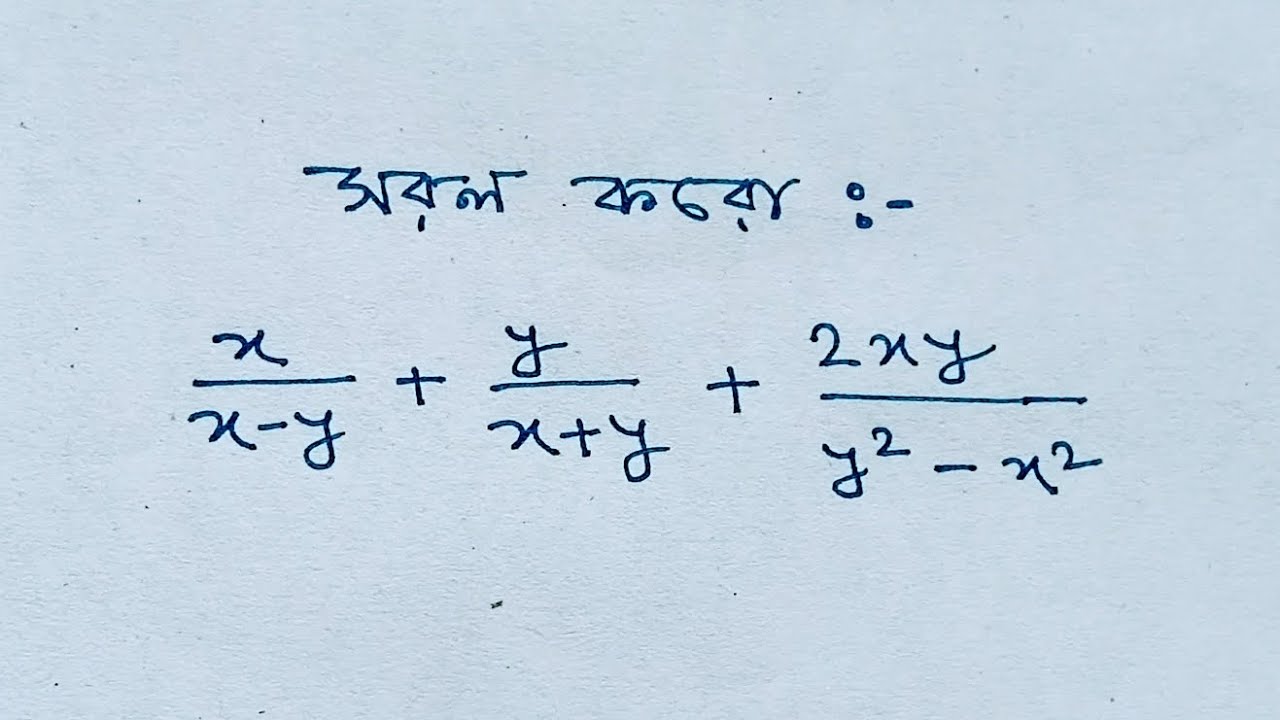 সরল করো :-
x/(x-y) + y/(x+y) + 2xy/(y² - x²)